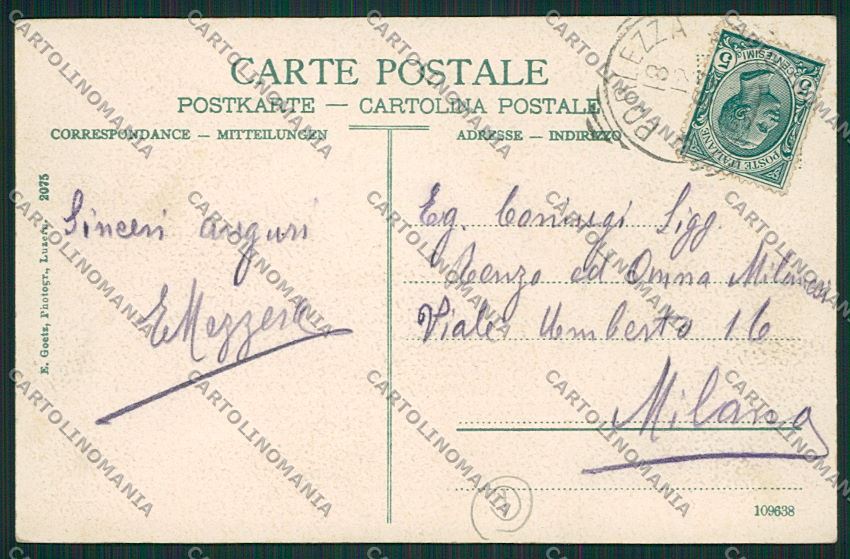 CARTE POSTALE
POSTKARTE — CARTOLINA POSTALE
CORRESPONDANCE — MITTEILUNGEN
ADRESSE — INDIRIZZO
PORLEZZA
18
12
CENTESIMI
5
5
POSTE ITALIANE
E. Goetz, Photogr., Luzern. 2075
Sinceri auguri
Eg. Coniugi Sigg.
Renzo ed Emma Milanesi
Viale Umberto 16
Milano
109638
CARTOLINOMANIA